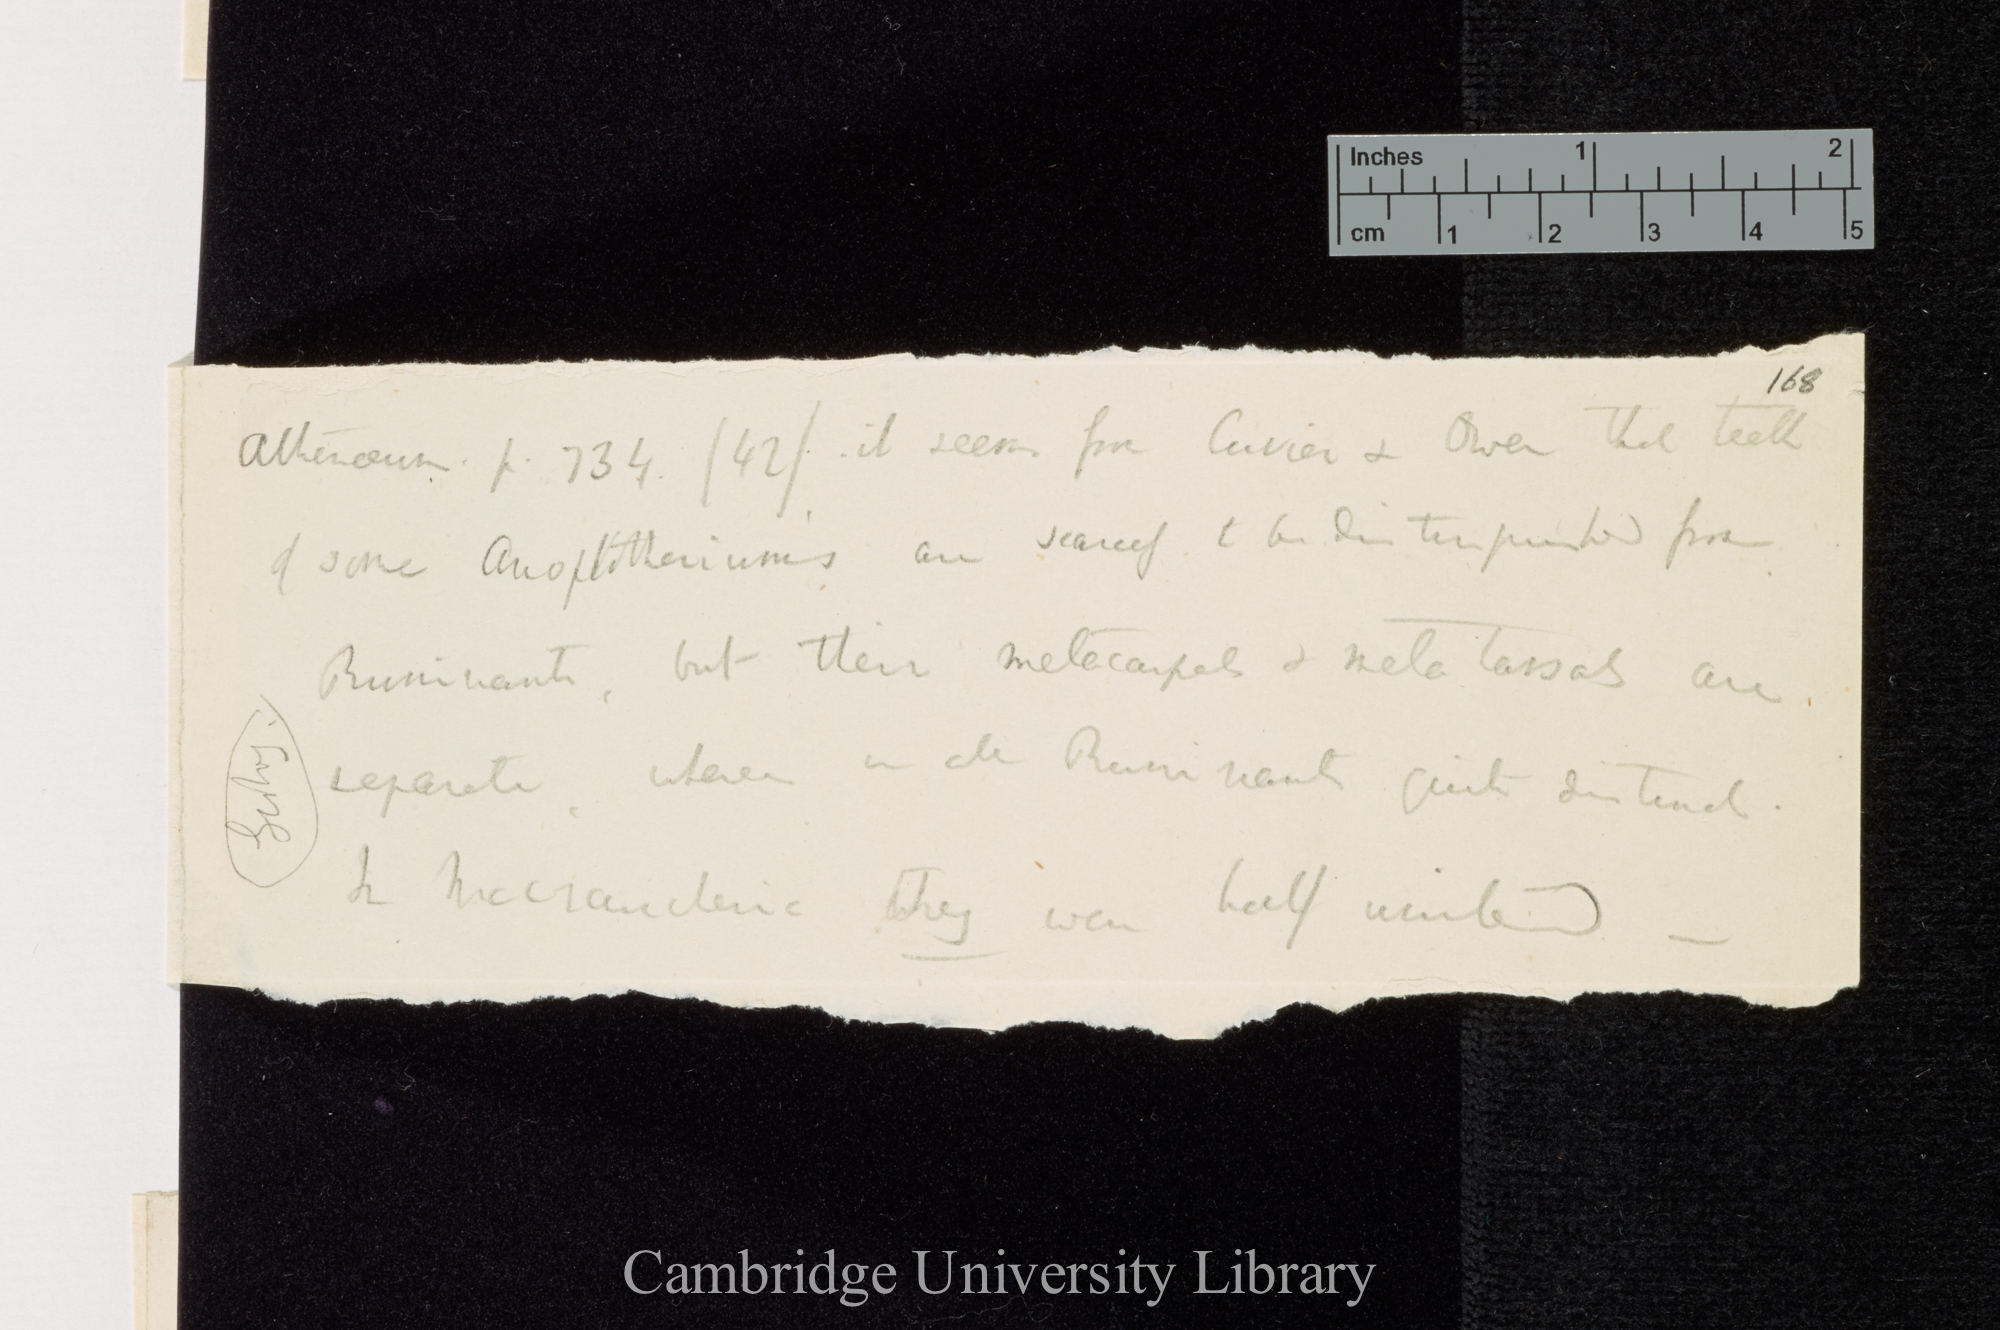 Inches 1 2
cm 1 2 3 4 5
168
Athenæum. p. 734. (42). it seems from Cuvier & Owen that teeth
of some Anoplotheriums are scarcely to be distinguished from
Ruminants, but their metacarpals & meta tarsals are
separate, whereas in other Ruminants quite distinct.
In Macrauchenia they were half united —
Cambridge University Library